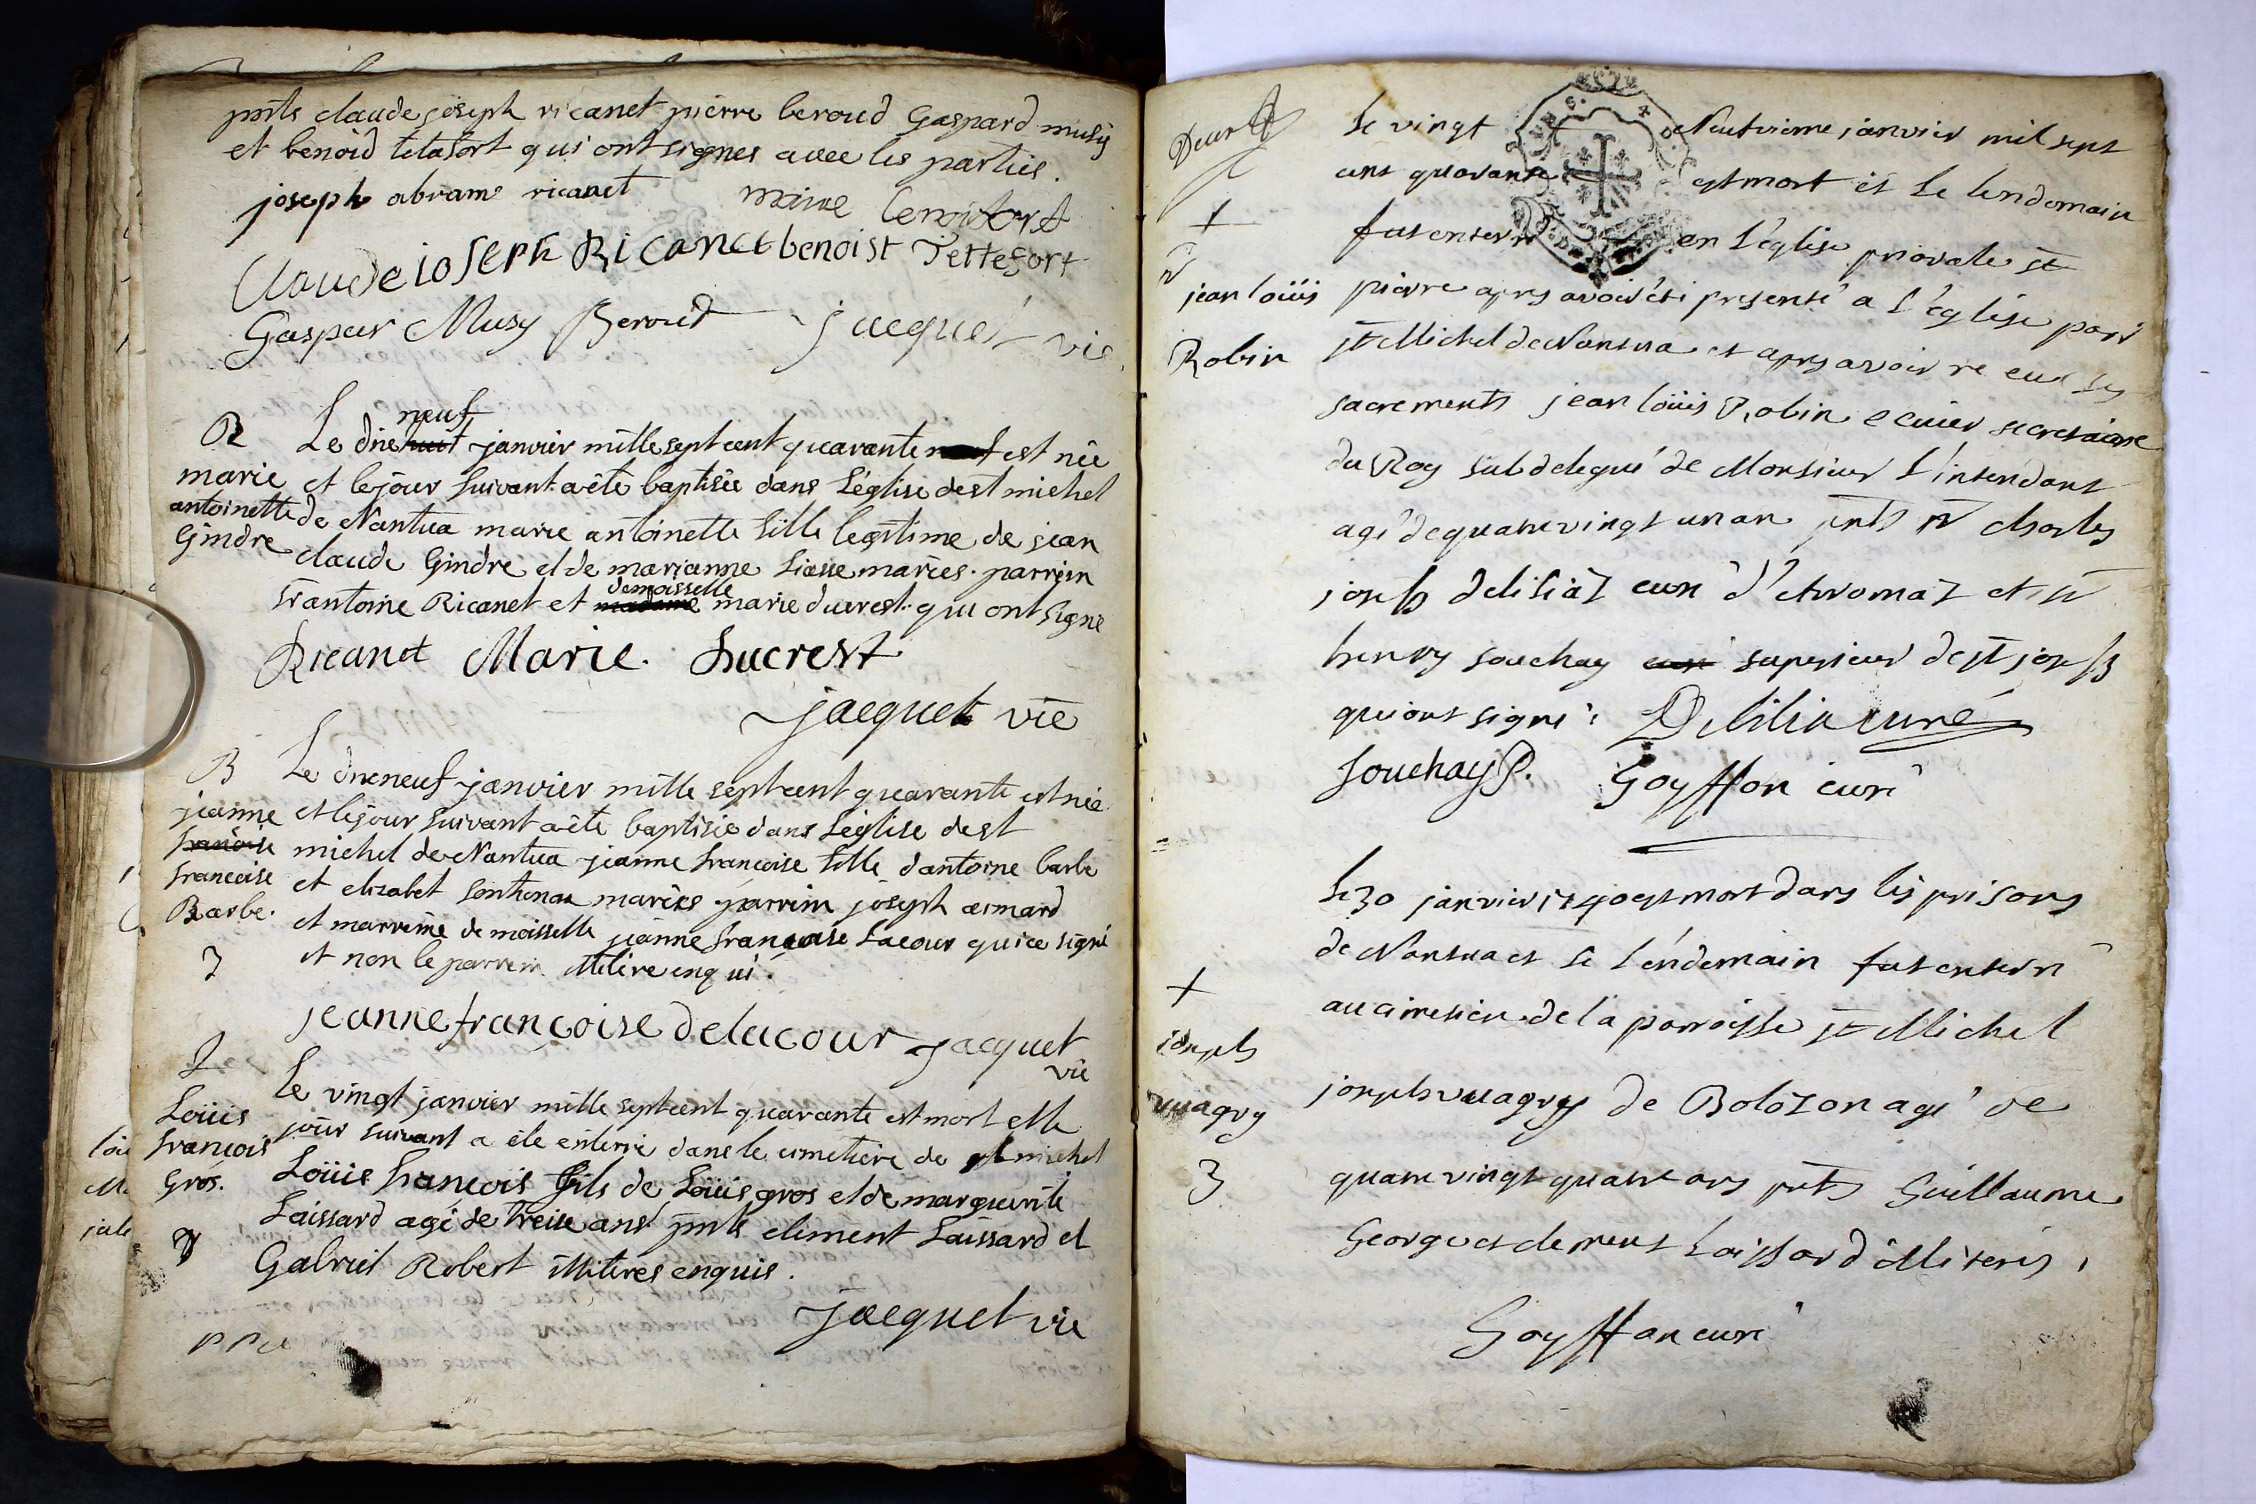 pnts claude joseph ricanet pierre beroud Gaspard musy
et benoid tetafort qui ont signes avec les parties.
joseph abram ricanet
Claude ioseph Ricanet benoist Tettefort
Gaspar Musy Beroud jacquet vic
B Le dixneuf janvier mille sept cent quarante est née
marie et le jour suivant a été baptisée dans L'église de st michel
antoinette de Nantua marie antoinette fille legitime de jean
Gindre claude Gindre et de marianne mariés. parrein
sr antoine Ricanet et demoisselle marie ducrest. qui ont signé
Ricanet Marie. Ducrest
jacquet vic
B Le dixneuf janvier mille sept cent quarante est née
jeanne et le jour suivant a été baptisée dans L'église de st
francoise michel de Nantua jeanne francoise fille d'antoine barbe
francoise et elizabet sonthonax mariés parrein joseph aimard
Barbe. et marreine demoisselle jeanne francoise Lacour qui a signé
3 et non le parrein illitere enqui.
jeanne françoise delacour jacquet
vic
Le vingt janvier mille sept cent quarante est mort et le
Loüis jour suivant a été enterré dans le cimetière de st michel
francois Loüis francois fils de Loüis gros et de marguerite
Gros. Laissard agé de treise ans pnts clement Laissard et
Gabriel Robert illiteres enquis.
jacquet vic
Le vingt Neufvieme janvier mil sept
cent quarante est mort et le lendemain
+ fut enterré en L'église priorale st
jean loüis pierre apres avoir été presenté a L'église parr
Robin st Michel de Nantua et apres avoir receu les
sacrements jean loüis Robin ecuier secretaire
du Roy subdelegué de Monsieur L'intendant
agé de quatre vingt un an pnts sr charles
joseph deliliaz curé d'Aromaz et sr
henry souchay curé superieur de st joseph
qui ont signé: Delilia curé
Souchay P. Goyffon curé
Le 30 janvier 1740 est mort dans les prisons
de Nantua et le lendemain fut enterré
+ au cimetiere de la parroisse st Michel
joseph joseph vuagry de Bolozon agé de
vuagry
3 quatre vingt quatre ans pnts Guillaume
George et clement Laissard illiterés,
Goyffon curé